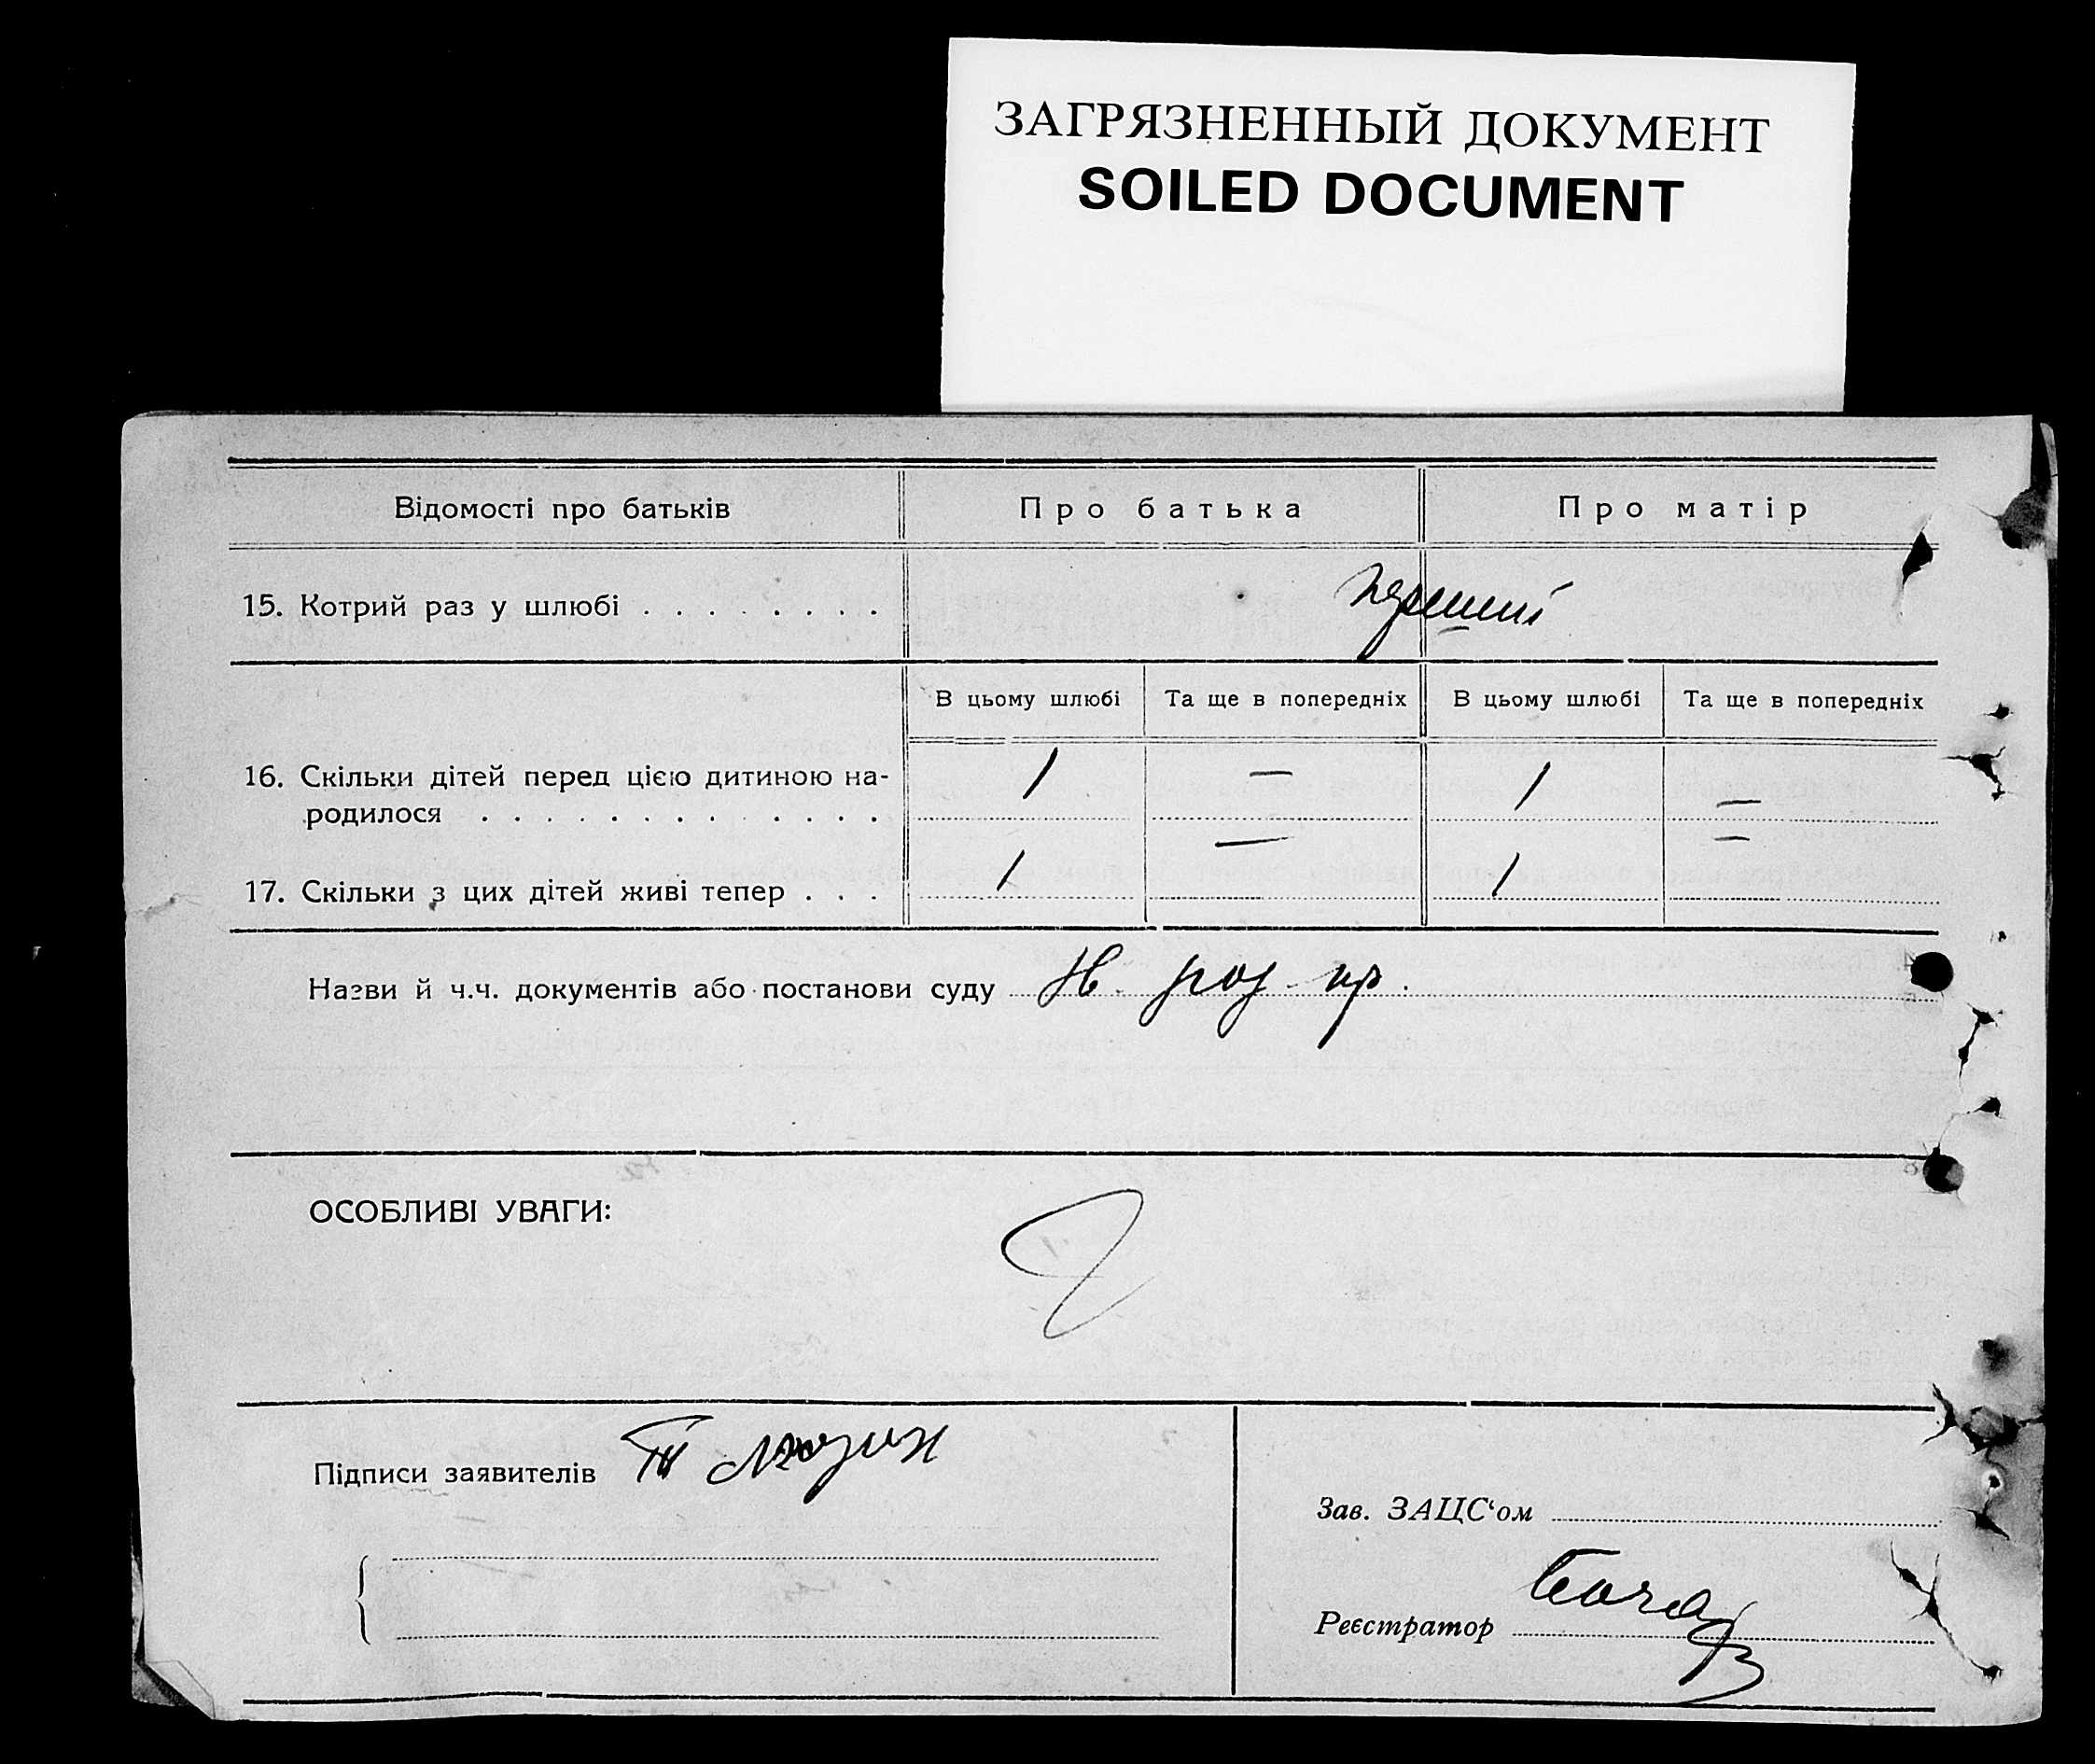 ЗАГРЯЗНЕННЫЙ ДОКУМЕНТ
SOILED DOCUMENT
Відомості про батьків Про батька Про матір
15. Котрий раз у шлюбі . . . . . . . . перший
В цьому шлюбі Та ще в попередніх В цьому шлюбі Та ще в попередніх
16. Скільки дітей перед цією дитиною на-
родилося . . . . . . . . . . . . . 1 — 1 —
17. Скільки з цих дітей живі тепер . . . 1 — 1 —
Назви й ч.ч. документів або постанови суду
ОСОБЛИВІ УВАГИ:
Підписи заявителів
Зав. ЗАЦС‘ом
Реєстратор